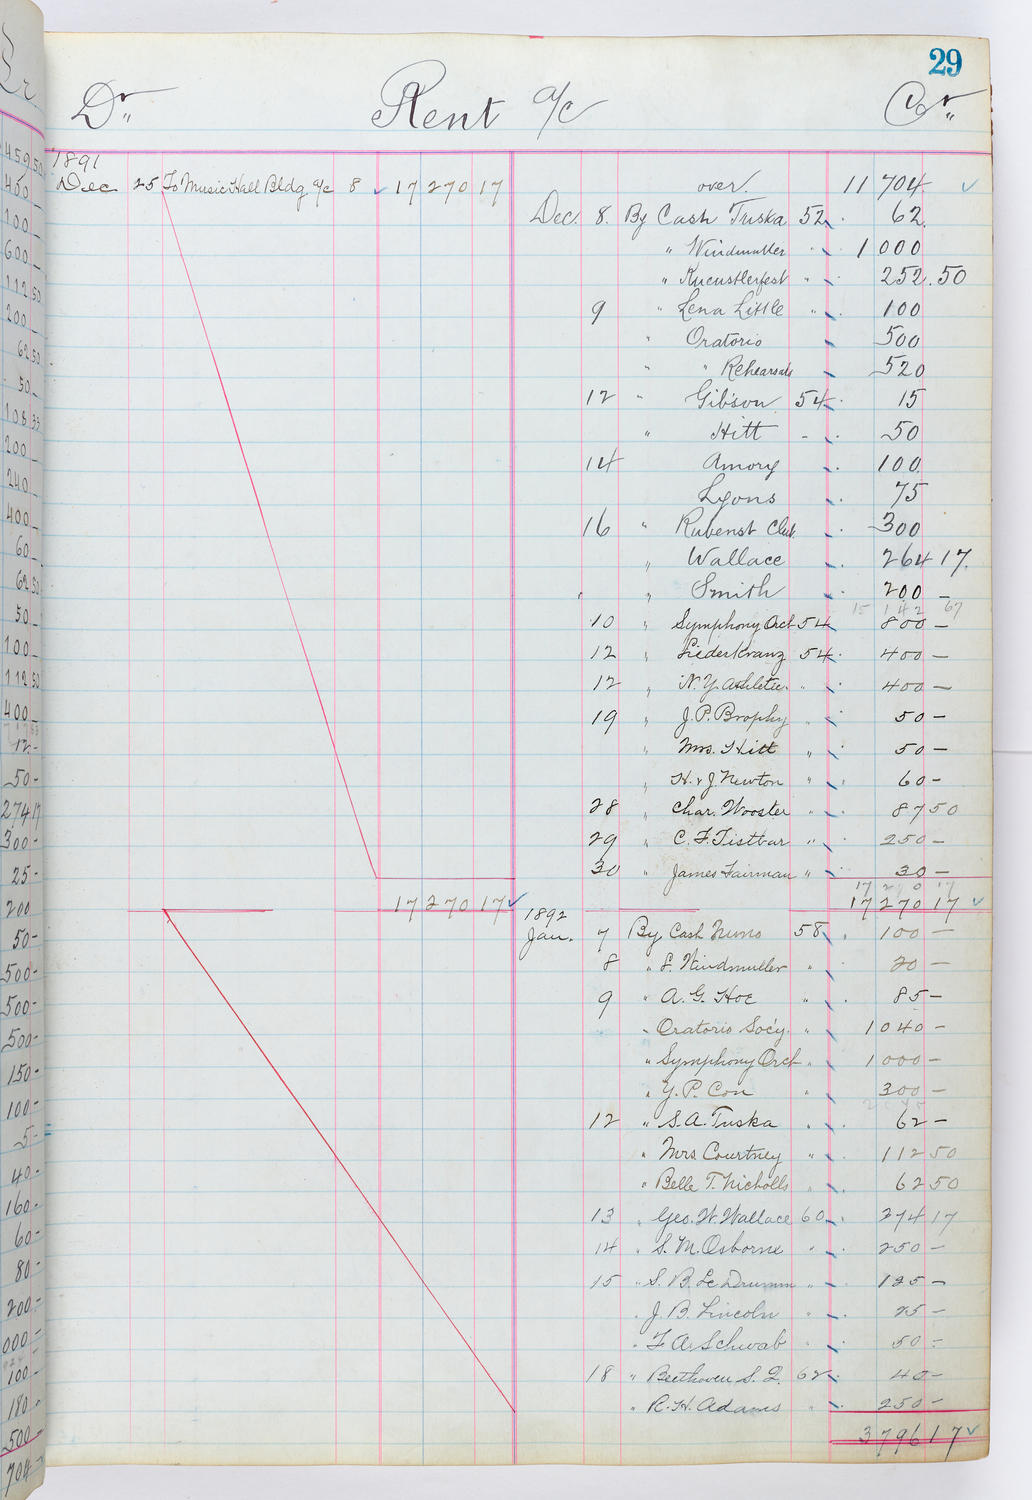 29
Dr. Rent a/c Cr.
1891
Dec 25 To Music Hall Bldg a/c 8 17 270 17
over. 11 704
Dec. 8. By Cash Tuska 52 62.
" Windmuller " 1 000
" Kuenstlerfest " 252.50
9 " Lena Little " 100
" Oratorio 500
" " Rehearsals 520
12 " Gibson 54 15
" Hitt - 50
14 Amory 100
Lyons 75
16 " Rubenst Club. 300
" Wallace 264 17.
" Smith 200 -
15 142 67
10 " Symphony Orch 54 800 -
12 " Liederkranz 54 400 -
12 " N.Y. Athletic " 400 -
19 " J. P. Brophy " 50 -
" Mrs. Hitt " 50 -
" H. & J. Newton " 60 -
28 " Char. Wooster " 87 50
29 " " 250 -
30 " James Fairman " 30 -
17 270 17
17 270 17 17 270 17
1892
Jan. 7 By Cash Nuno 58 100 -
8 " L. Windmuller " 20 -
9 " A. G. Hoe " 85 -
" Oratorio Soc'y. " 1 040 -
" Symphony Orch " 1 000 -
" Y. P. Con " 300 -
12 " S. A. Tuska " 62 -
" Mrs Courtney " 112 50
" Belle T. Nicholls " 62 50
13 " Geo. W. Wallace 60 274 17
14 " S. M. Osborne " 250 -
15 " S. B. Le Drumm " 125 -
" J. B. Lincoln " 25 -
" F. A. Schwab " 50 -
18 " Beethoven S. Q. 62 40 -
" R. H. Adams " 250 -
3 796 17